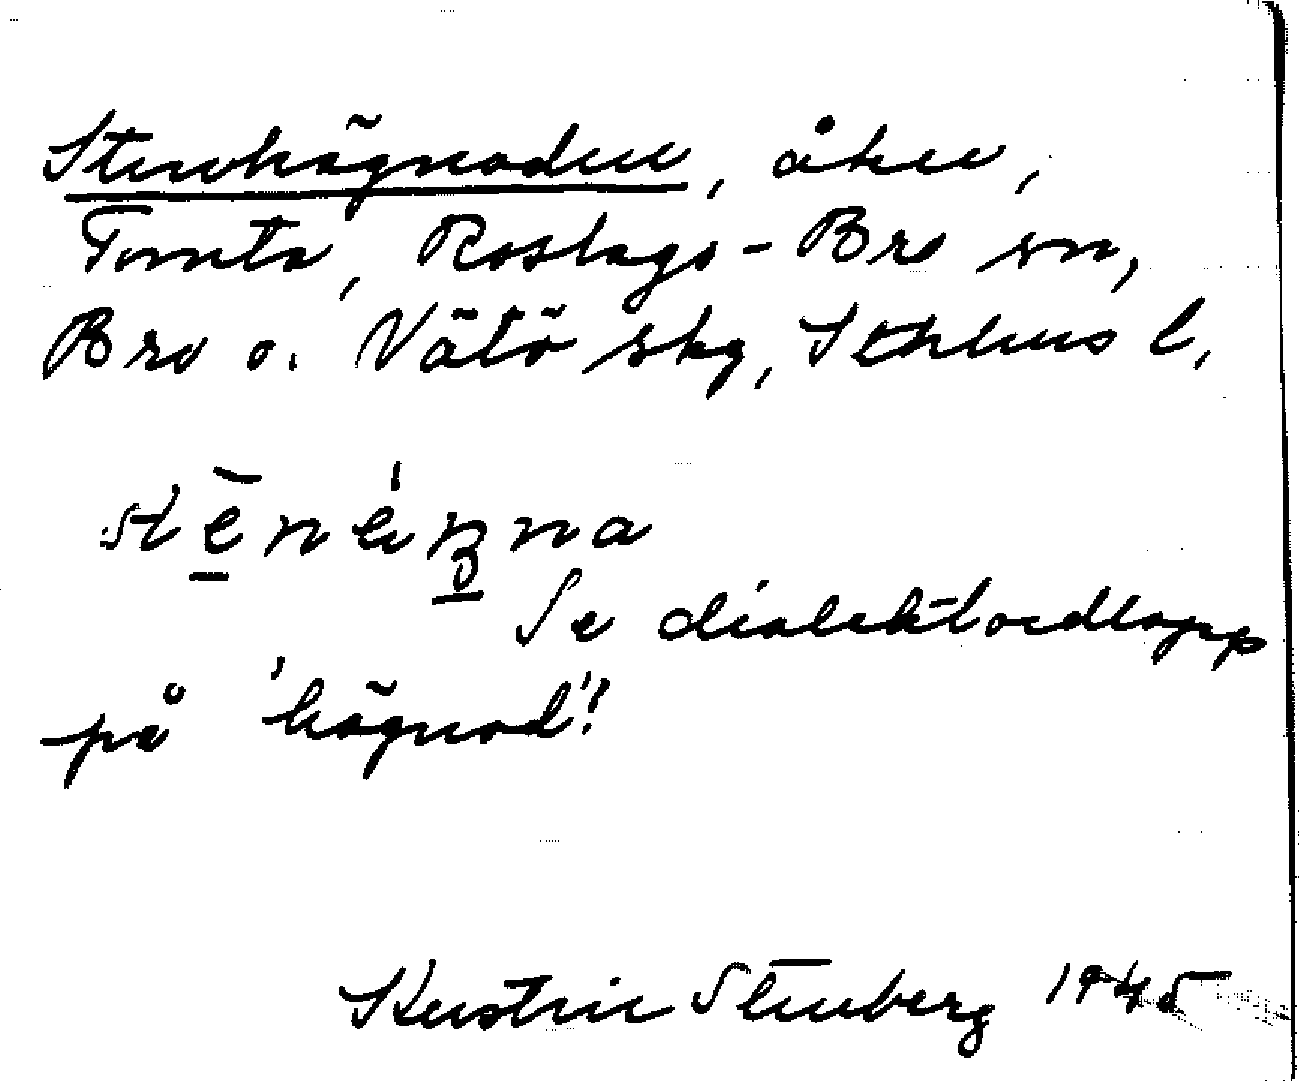 Stenhägnaden, åker,
Tomta, Roslags-Bro sn,
Bro o. Vätö skg, Sthlms l.
Se dialektordlapp
på 'hägnad'!
Kerstin Stenberg 1945